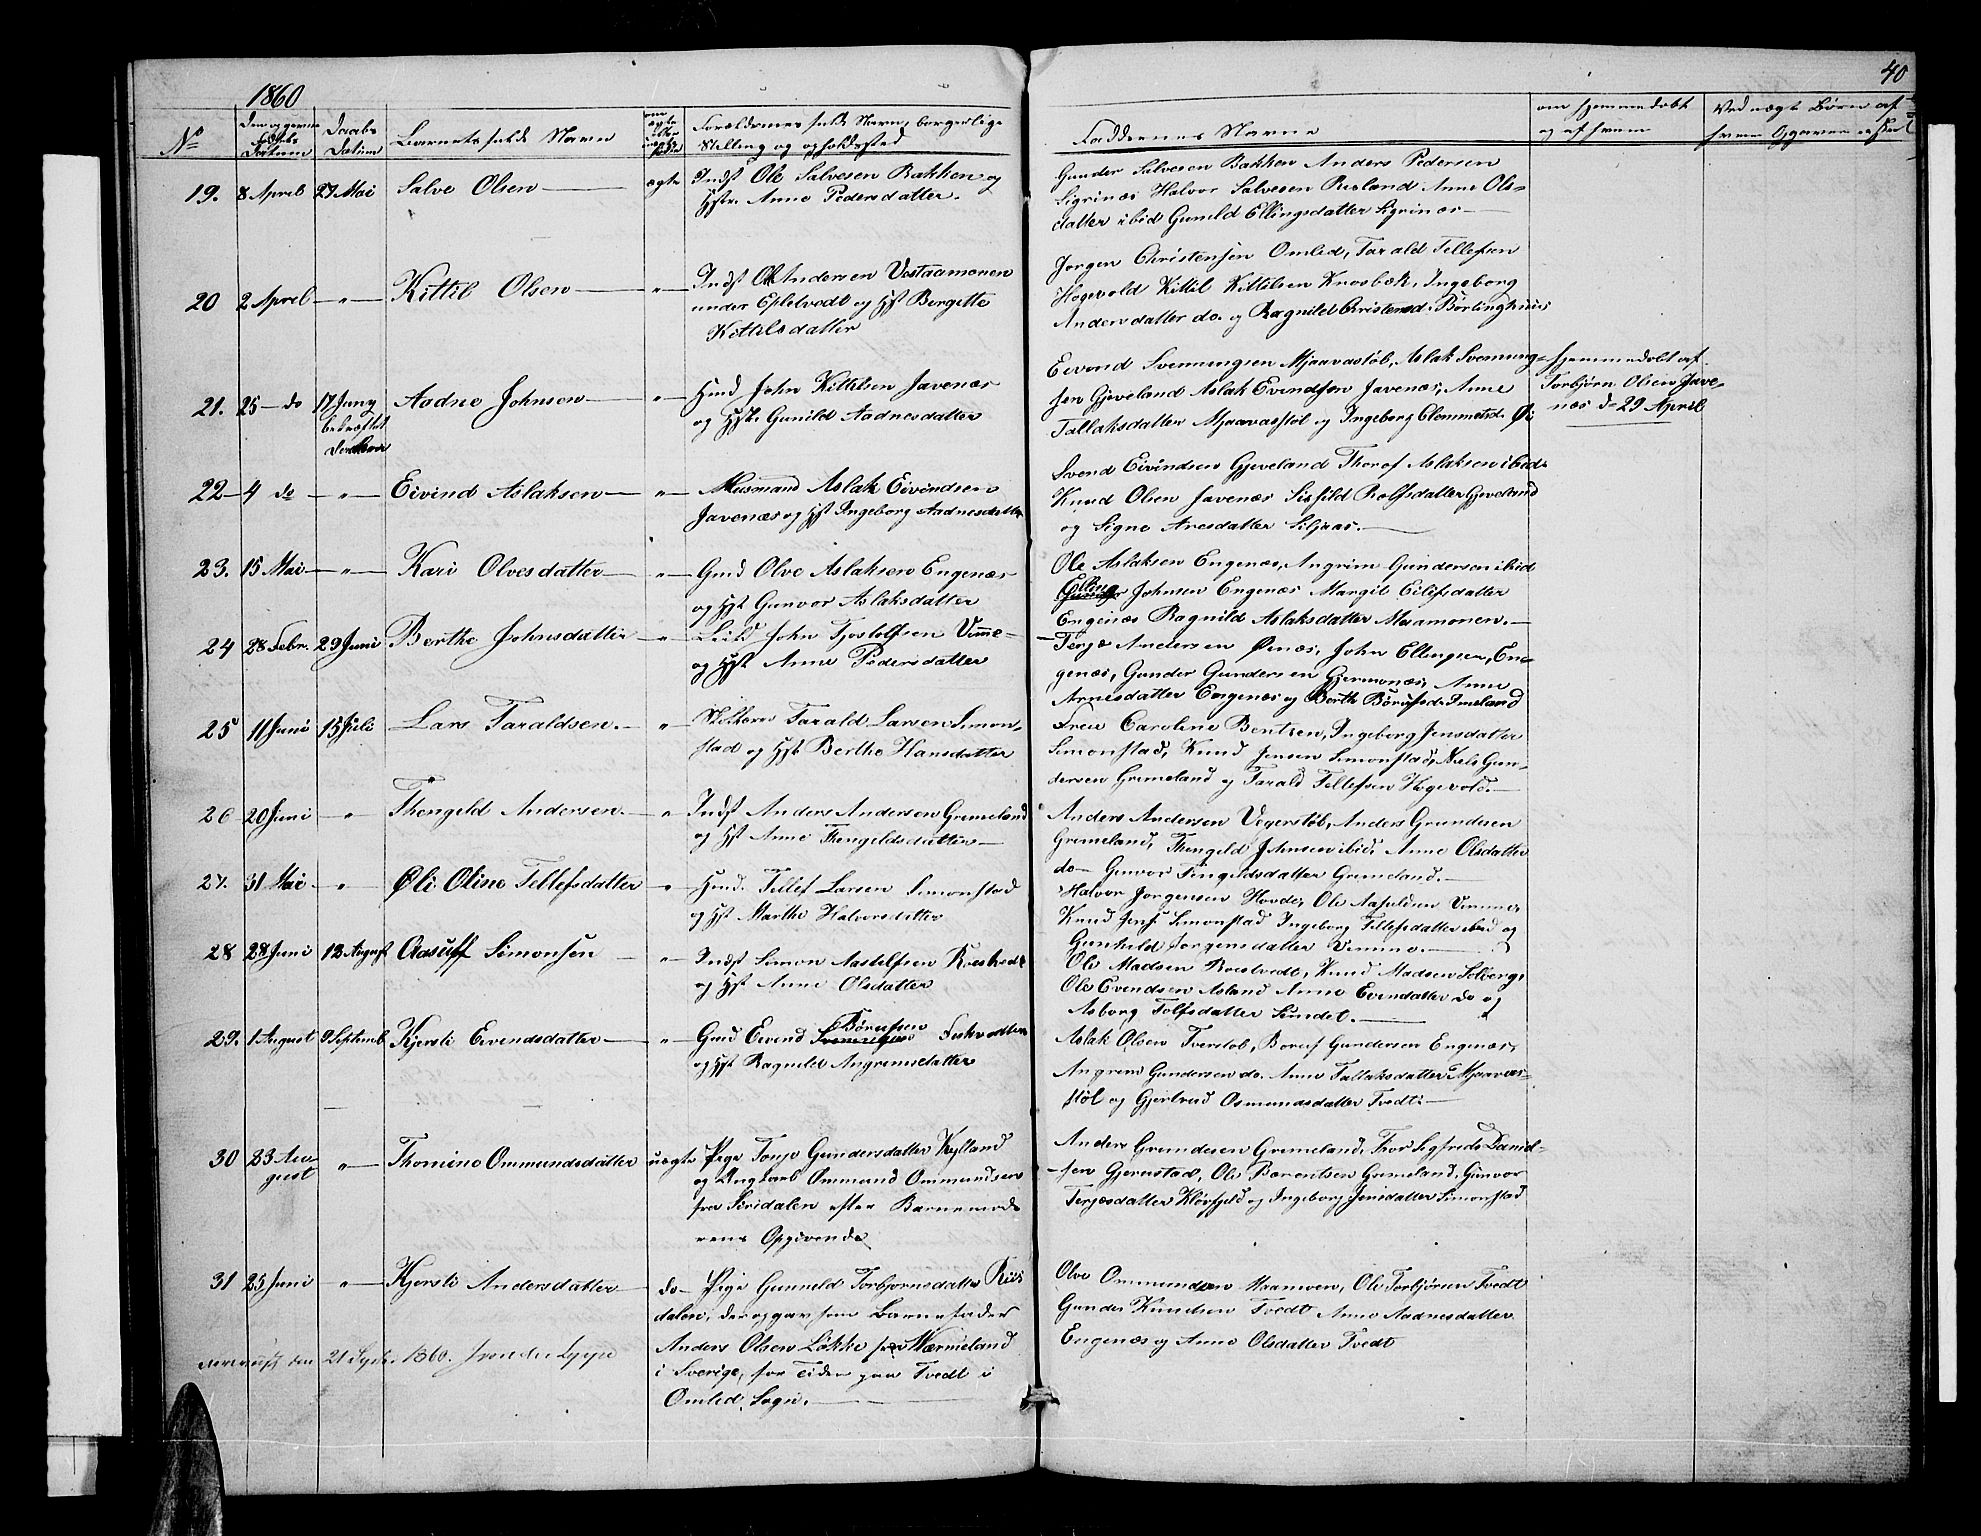 40
1860
No
Datum
Daabs
Datum
Barnets fulde Navn
om ægte eller uægte
Forældrenes fulde Navn, borgerlige
Stilling og opholdssted
Faddernes Navne
om hjemmedøbt
og af hvem
Ved uægt Børn af
hvem Opgaven er skeet
19. 8 April 27 Mai Salve Olsen ægte Indst Ole Salvesen Bakken og
Hstr. Anne Pedersdatter.
Gunder Salvesen Bakken Anders Pedersen
Sigrinæs Halvor Salvesen Risland Anne Ols-
datter ibid Gunild Ellingsdatter Sigrinæs
20 2 April " Kittil Olsen " Indst Ole Andersen Vastaamonen
under Epletvedt og Hst Bergitte
Kittilsdatter
Jorgen Christensen Omlid, Tarald Tellefsen
Hogevold Kittil Kittilsen Knosbæk, Ingeborg
Andersdatter do. og Ragnild Christensd. Børlinghuus
21. 25 do 17 Juny Aadne Johnsen " Hmd John Kittilsen Javenæs
bekræftet
og Hst. Gunild Aadnesdatter
Eivind Svennungsen Mjaavastøl, Aslak Svennung-
sen Gjeveland Aslak Evindsen Javenæs, Anne
Tallaksdatter Mjaavasstøl og Ingeborg Clemmetsd. Øi
hjemmedøbt af
Torbjørn Olsen Jave-
næs d. 29 April
22 4 do " Eivind Aslaksen " Husmand Aslak Eivindsen
Javenæs og Hst Ingeborg Aadnesdatter
Svend Eivindsen Gjeveland Thorof Aslaksen ibid.
Knud Olsen Javenæs Sigfild Rolfsdatter Gjeveland
og Signe Arnesdatter Siljaas.
23. 15 Mai " Kari Olvesdatter " Gmd Olve Aslaksen Engenæs
og Hst Gunvor Aslaksdatter
Ole Aslaksen Engenæs, Angrim Gundersen ibid
Elling Johnsen Engenæs Margit Eilefsdatter
Engenæs Ragnild Aslaksdatter Maamonen.
24 28 Febr. 29 Juni Berthe Johnsdatter " Leild John Tjostolfsen Vimme
og Hst Anne Pedersdatter
Terje Andersen Øinæs, John Ellingsen, En-
genæs, Gunder Gundersen Gjermonæs, Anne
Arnesdatter Engenæs og Berth Børufsd. Imeland
25 11 Juni 15 Juli Lars Taraldsen. " Skolelærer Tarald Larsen Simon-
stad og Hst. Berthe Hansdatter
Frue Caroline Bentzen, Ingeborg Jensdatter
Simonstad, Knud Jensen Simonstad, Niels Gun-
dersen Grimeland og Tarald Tellefsen Hogevold.
26 20 Juni " Thengeld Andersen. " Indst Anders Andersen Grimeland
og Hst Anne Thengeldsdatter
Anders Andersen Vegerstøl, Anders Grundesen
Grimeland, Thengeld Johnsen ibid, Anne Olsdatter
do Gunvor Tingeldsdatter Grimeland.
27. 31 Mai " Øli Oline Tellefsdatter " Hmd. Tellef Larsen Simonstad
og Hst Marthe Halvorsdatter
Halvor Jorgensen Hovde, Ole Aasulvsen Vimme,
Knud Jens. Simonstad Ingeborg Tellefsdatter ibid og
Gunhild Jorgensdatter Vimme.
28 28 Juni 12 August Aasuff Simonsen " Indst Simon Aastelfsen Roestvedt
og Hst Anne Olsdatter
Ole Madsen Roestvedt, Knud Madsen Solberg,
Ole Evendsen Asland Anne Evendatter do og
Asborg Tolfsdatter Sundet.
29. 1 August 9 Septemb. Kjersti Eivendsdatter " Gmd Eivend Børufsen
og Hst Ragnild Angrimsdatter
Aslak Olsen Tverstøl, Boruf Gundersen Engenæs,
Angrim Gundersen do. Anne Tallaksdatter Mjaavas-
støl og Gjertrud Osmundsdatter Tvedt.
30 23 Au- " Thomine Ommundsdatter uægte Pige Tonje Gundersdatter Kylland
gust
og Ungkarl Ommund Ommundsen
fra Siredalen efter Barnemode
rens Opgivende
Anders Grundesen Grimeland, Fror Sigfrids Daniel-
sen Gjerustad, Ole Berentsen Grimeland, Gunvor
Terjesdatter Kløvfjeld og Ingeborg Jensdatter Simonstad
31 25 Juni " Kjersti Andersdatter do Pige Gunneld Torbjornsdatter Riis
dalen, der opgav som Barnefader
Anders Olsen Løkke fra Wærmeland
i Sverige, for Tiden paa Tvedt i
Omlid Sogn.
Olve Ommundsen Maamoen, Ole Torbjørnsen Tvedt
Gunder Knudsen Tvedt Anne Aadnesdatter
Engenæs og Anne Olsdatter Tvedt
den 21 Septr. 1860.